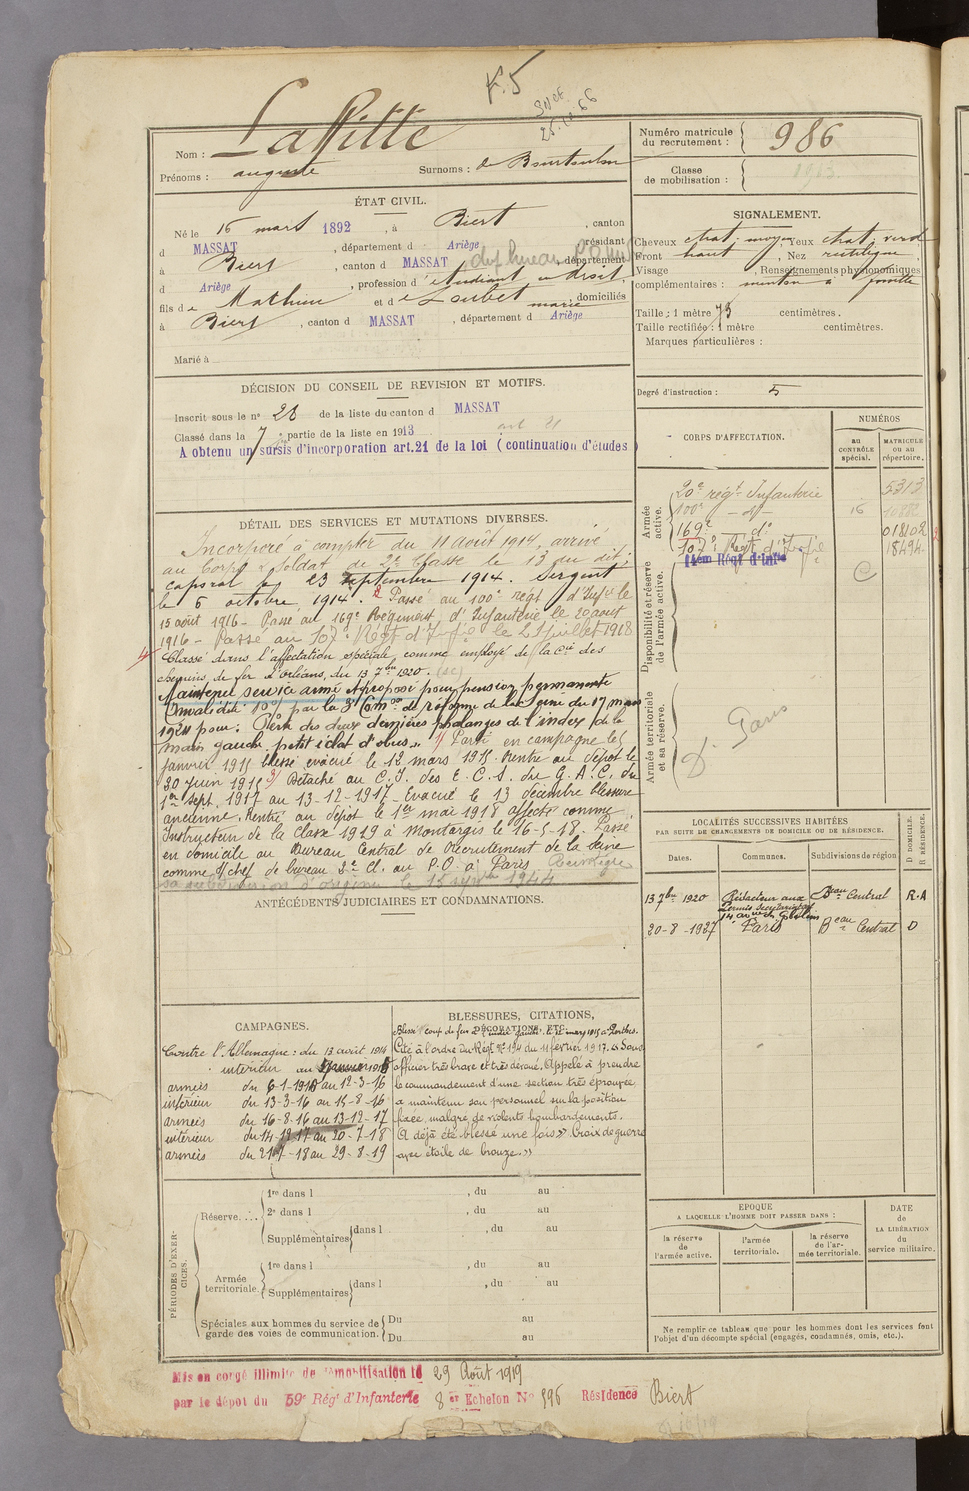 F.5
Nom : Laffitte
Prénoms : auguste Surnoms : de
Numéro matricule du recrutement : 986
Classe de mobilisation : 1913
ÉTAT CIVIL.
Né le 16 mars 1892, à Biert, canton
d MASSAT, département d Ariège, résidant
à Biert, canton d MASSAT, département
d Ariège, profession d'étudiant en droit,
fils de Mathieu et de Loubet marie domiciliés
à Biert, canton d MASSAT, département d Ariège
Marié à
DÉCISION DU CONSEIL DE REVISION ET MOTIFS.
Inscrit sous le n° 28 de la liste du canton d MASSAT
Classé dans la 7 partie de la liste en 1913
art 21
A obtenu un sursis d'incorporation art.21 de la loi (continuation d'études)
DÉTAIL DES SERVICES ET MUTATIONS DIVERSES.
Incorporé à compter du 11 août 1914, arrivé
au Corps & Soldat de 2e Classe le 13 du dit;
caporal le 23 septembre 1914. Sergent
le 5 octobre 1914. 2) Passé au 100e régt d'Infie le
15 août 1916 - Passé au 169e Régiment d'Infanterie le 20 août
1916 - Passé au 107e Régt d'Infie le 21 juillet 1918
4) Classé dans l'affectation spéciale comme employé de la Cie des
chemins de fer d'Orléans, du 13 7bre 1920.
Maintenu service armé et proposé pour pension permanente
Invalidité 10% par la 3e Comon de réforme de la Seine du 17 mars
1924 pour : Perte des deux dernières phalanges de l'index de la
main gauche, petit éclat d'obus. 1) Parti en campagne le 5
janvier 1915 blessé évacué le 12 mars 1915. Rentré au dépôt le
30 juin 1915 3) Détaché au C.I. des E.C.S. du G.A.C. du
1er Sept. 1917 au 13-12-1917 - Evacué le 13 décembre blessure
ancienne. Rentré au dépôt le 1er mai 1918 affecté comme
Instructeur de la classe 1919 à Montargis le 16-5-18. Passé
en domicile au Bureau Central de Recrutement de la Seine
comme s/chef de bureau 2e Cl. au P.O. à Paris
sa subdivision d'origine le 15 1944
ANTÉCÉDENTS JUDICIAIRES ET CONDAMNATIONS.
CAMPAGNES.
Contre l'Allemagne : du 13 avril 1914
intérieur au 5 janvier 1915
armées du 6-1-1915 au 12-3-16
intérieur du 13-3-16 au 15-8-16
armées du 16-8-16 au 13-12-17
intérieur du 14-12-17 au 20-7-18
armées du 21-7-18 au 29-8-19
BLESSURES, CITATIONS,
DÉCORATIONS, ETC.
Blessé coup de feu à l'index gauche le 12 mars 1915 à Perthes.
Cité à l'ordre du Régt N° 194 du 11 février 1917. « Sous
officier très brave et très dévoué. Appelé à prendre
le commandement d'une section très éprouvée
a maintenu son personnel sur la position
fixée malgré de violents bombardements.
A déjà été blessé une fois » Croix de guerre
avec étoile de bronze. »
PÉRIODES D'EXERCICES.
Réserve...
1re dans l , du au
2e dans l , du au
Supplémentaires dans l , du au
Armée territoriale
1re dans l , du au
Supplémentaires dans l , du au
Spéciales aux hommes du service de garde des voies de communication.
Du au
Du au
SIGNALEMENT.
Cheveux chat. moyen, Yeux chat. verd
Front haut, Nez rectiligne,
Visage , Renseignements physionomiques
complémentaires : menton à fossette
Taille : 1 mètre 73 centimètres.
Taille rectifiée : 1 mètre centimètres.
Marques particulières :
Degré d'instruction : 5
CORPS D'AFFECTATION.
NUMÉROS
au CONTRÔLE spécial.
MATRICULE OU au répertoire.
Armée active.
20e régt Infanterie 5313
100e - d° - 16
169e d° 018102
107e Régt d'Infie 18494
14ème Régt d'Infie
Disponibilité et réserve de l'armée active.
Armée territoriale et sa réserve.
D. Paris
LOCALITÉS SUCCESSIVES HABITÉES
PAR SUITE DE CHANGEMENTS DE DOMICILE OU DE RÉSIDENCE.
Dates. Communes. Subdivisions de région D DOMICILE. R RÉSIDENCE.
13 7bre 1920 Rédacteur aux Beau Central R.A
20-8-1927 Paris Beau Central D
ÉPOQUE
A LAQUELLE L'HOMME DOIT PASSER DANS :
la réserve de l'armée active.
l'armée territoriale.
la réserve de l'armée territoriale.
DATE de LA LIBÉRATION du service militaire.
Ne remplir ce tableau que pour les hommes dont les services font
l'objet d'un décompte spécial (engagés, condamnés, omis, etc.).
Mis en congé illimité de démobilisation le 29 Août 1919
par le dépôt du 59e Régt d'Infanterie 8 er Echelon N° 596 Résidence Biert